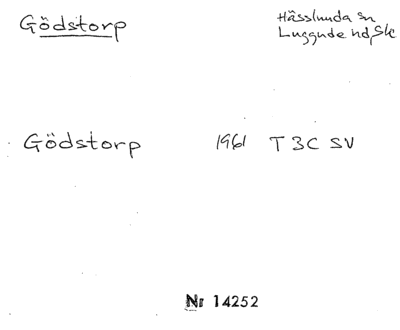 Gödstorp
Hässlunda sn
Luggude hd, Sk
Gödstorp 1961 T 3C SV
Nr 14252